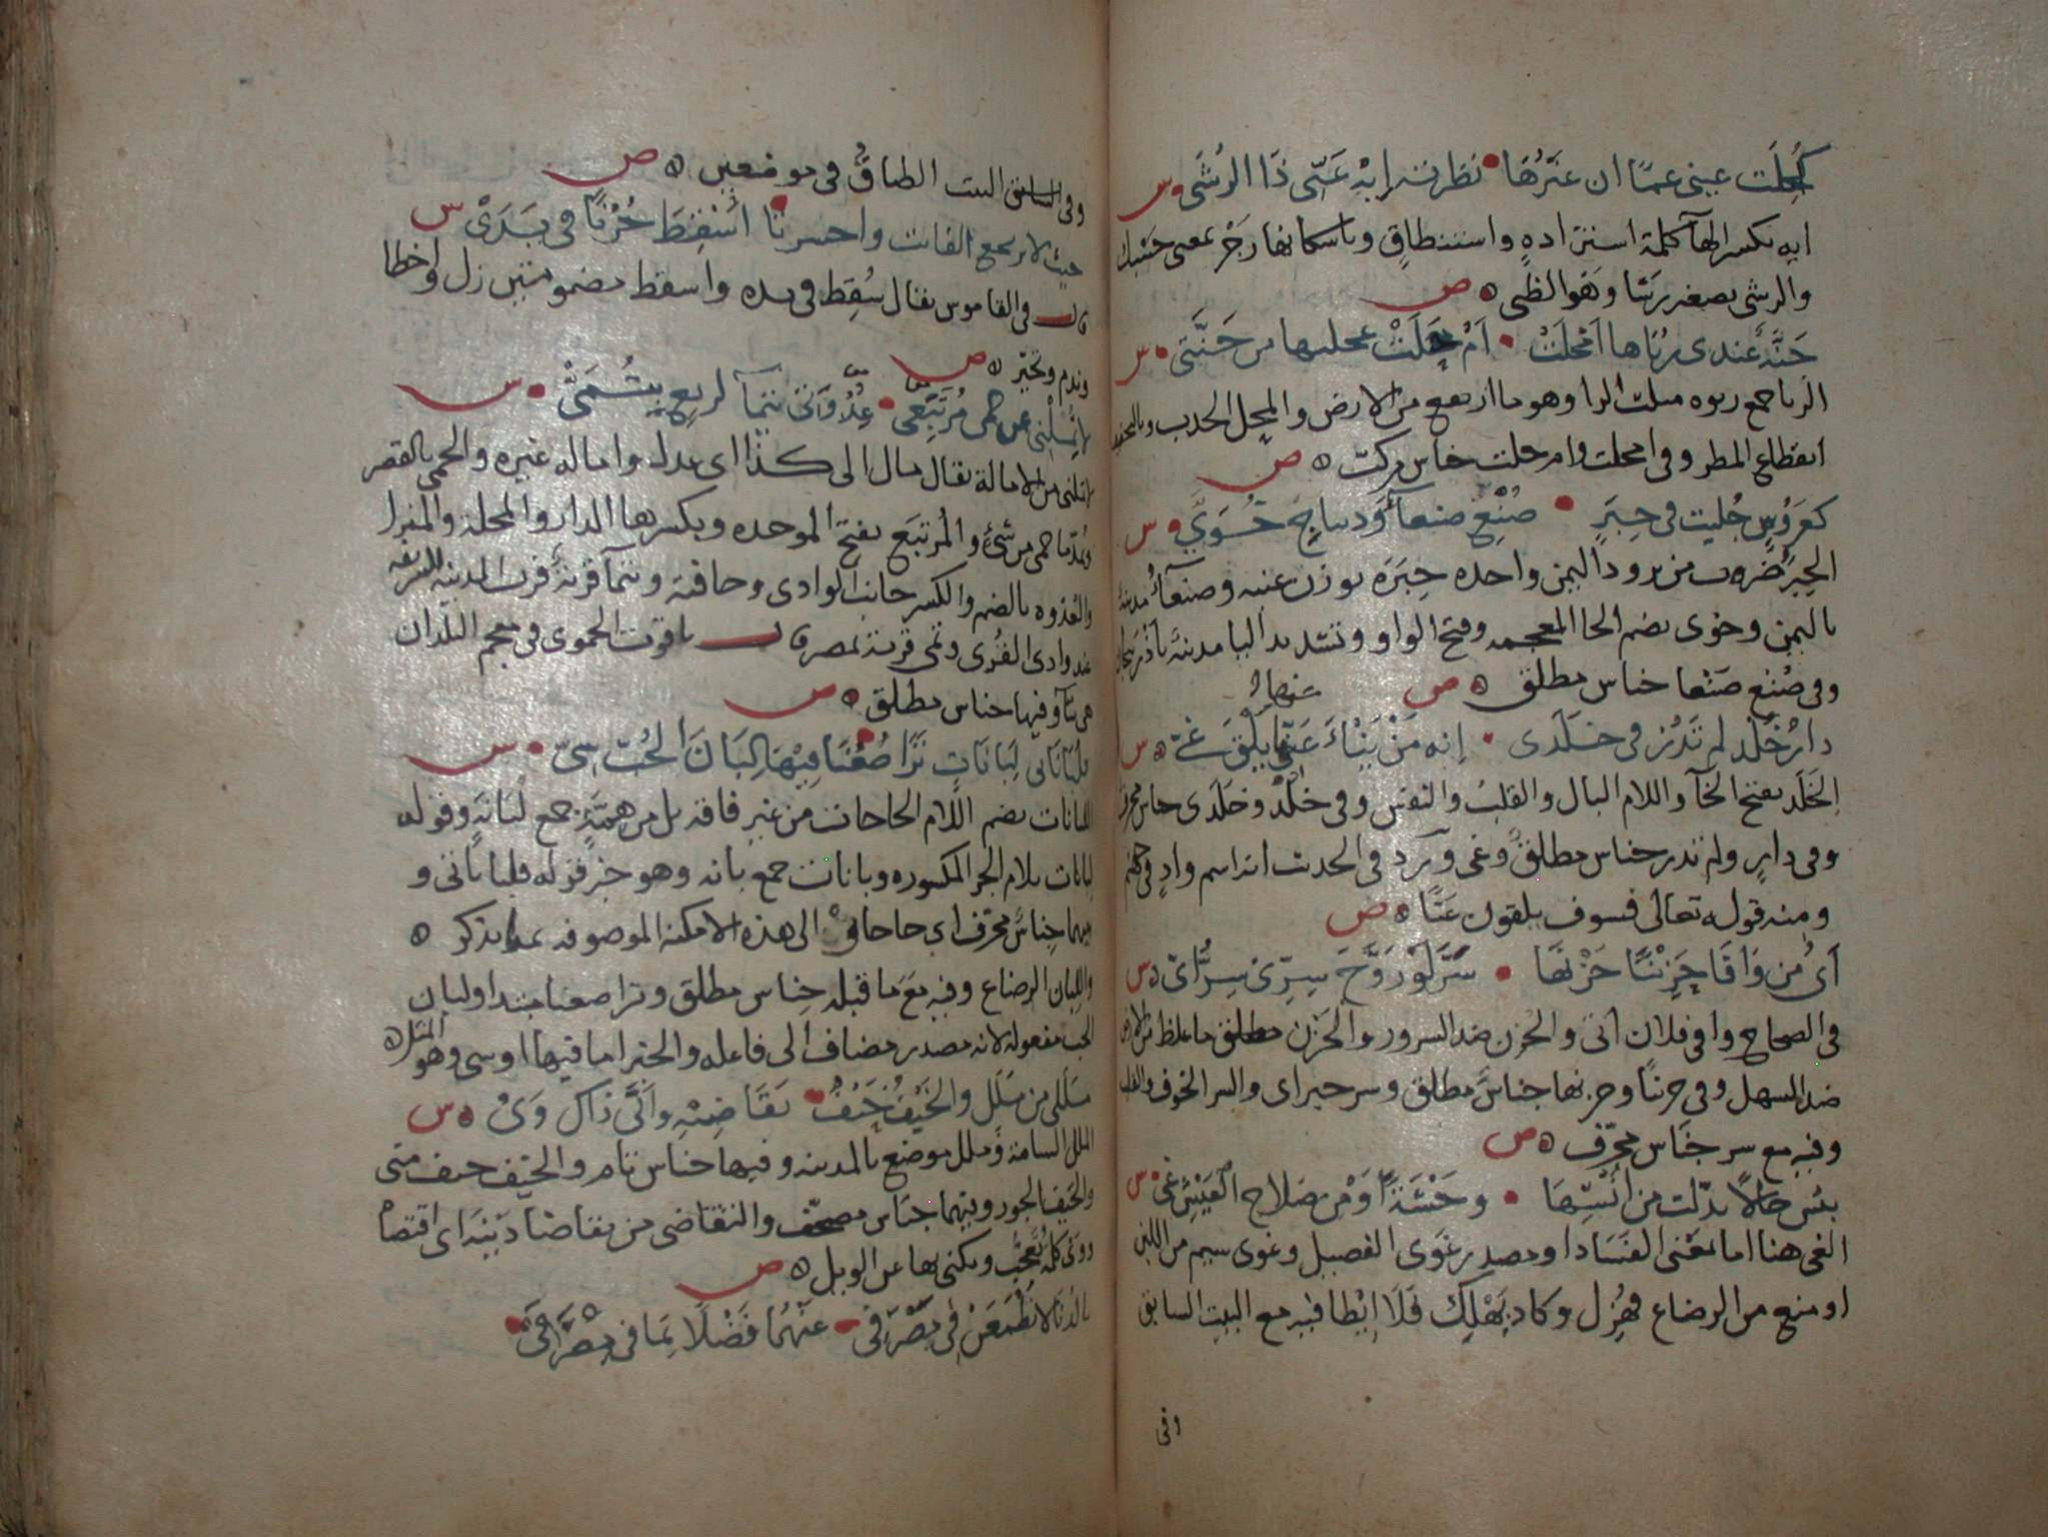 كُحِلَت عيني عمًا ان غيرُها نظرته ايهِ عَنّي ذا الرُشَي س
ايه بكسر الهآ كلمة استزادةٍ واستنطاقٍ وباسكانها زجْر بمعنى حسْبك
والرشى تصغير رشا وهو الظبي ه ص
جَنَّة عندى رُبَاها اَمْحَلَتْ اَمْ حَلَتْ عجلتها من جَنّتَي س
الربا جمع ربوه مثلث الرا وهو ما ارتفع من الارض والمحل الجدب
انقطاع المطر وفى امحلت وام حلت جناس مركب ه ص
كعَرُوسٍ جُليت في حِبَرٍ صُنْعِ صنعآءَ وديباجِ خُوَيّ س
الحِبَر ضروب من برود اليمن واحده حِبَرَه بوزن عنبه وصنعآءُ مدينة
باليمن وخوى بضم الخا المعجمه وفتح الواو وتشديد اليا مدينة باذربيجان
وفى صُنْع صَنْعا جناس مطلق ه ص
دارُ خُلْد لم تَدُرْ في خَلَدى انه مَنْ يَنْاءَ عَنها يَلْقَ غَيّ ه س
الخَلَد بفتح الخآ واللام البال والقلبُ والنفس وفى خُلْد وخَلَدى جناس محرف
وفى دارٍ ولم تدر جناس مطلق وغى ورد فى الحديث انه اسم وادٍ في جهنم
ومنه قوله تعالى فسوف يلقون غيّا ه ص
اَىُّ مَن وَافَا حَزِيْنًا حَزْنَهَا سُرَّ لَوْ رَوَّحَ سِرِّى سِرُّ اَىّ ه س
في الصحاح وافى فلان اتى والحُزن ضد السرور والحَزْن مطلق ما غلظ من الارض
ضد السهل وفى حزينا وحزنها جناس مطلق وسر خبر اى والسر الجوف والقلب
وفيه مع سر جناس محرّف ه ص
بئس حالًا بدّلت من اُنْسِهَا وحْشَةً اَوْ مِن صلاح العَيْشِ غي س
الغى هنا اما بمعنى الفساد او مصدر غوى الفصيل وغوى سيم من اللبن
او منع من الرضاع فهُزِل وكاد يَهْلِك فَلَا اِيْطا فيه مع البيت السابق
وفى
وفى السابق البيت الطباقُ في موضعين ه ص
حيثُ لا يرجع الفائت واحسرتا اُسْقِطَ حُزْنًا في يَدَىّ س
قال في القاموس يقال سُقِط في يده واسقط مضمومتين زل واخطا
وندم وتحيّر ه ص
لا تُمِلْنى عن حمى مُرْتَبَعى عُِدْوَتَىْ تَيْمَآ لربعٍ بِتُمَيّ س
لا تملنى من الامالة يقال مال الى كذا اى عدل واماله غيره والحمى بالقصر
ويمدّ ما حمى من شئ والمُرتبَع بفتح الموحده وبكسرها الدار والمحلة والمنزل
والعُدوه بالضم والكسر جانب الوادى وحافته وتيمآ قرية قرب المدينه الشريفه
عند وادى القُرى وتمى قرية بمصر قال ياقوت الحموى في معجم البلدان
هى تيمآ وفيها جناس مطلق ه ص
فلُبَانَاتى لِبَانَاتٍ تَرَاضُعُنَا فِيْهَا لِبَانَ الحُبّ سِىّ س
اللبانات بضم اللام الحاجات من غير فاقة بل من همَّةٍ جمع لُبَانَه وقوله
لبانات بلام الجر المكسوره وبانات جمع بانه وهو خبر قوله فلباناتى و
بينهما جناسٌ محرّف اى حاجاتى الى هذه الامكنة الموصوفه بما يذكر ه
واللِبان الرضاع وفيه مع ما قبله جناس مطلق وتراضعنا مبتدا ولبان
الحب مفعوله لانه مصدر مضاف الى فاعله والخبر اما فيها او سى وهو المثل ه
مَلَلى من مَلَلٍ والخَيْفُ حَيْفٌ تقَاضِيْهِ واَنَّى ذَاكَ وَىْ ه س
الملل السامة وملل موضع بالمدينه وفيها جناس تام والخيف خيف منى
والحَيف الجور وبينهما جناس مصحّف والتقاضى من تقاضا دَيْنه اى اقتضاه
ووَى كلمة تعجُّب ويكنى بها عن الويل ه ص
بالدُنَا لا تَطْمَعَنْ فِى مَصْرَفى عَنْهُمَا فَضْلًا بِمَا فى مِصْرَ فَىّ